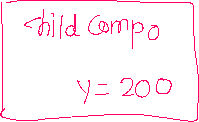 child compo
y = 200